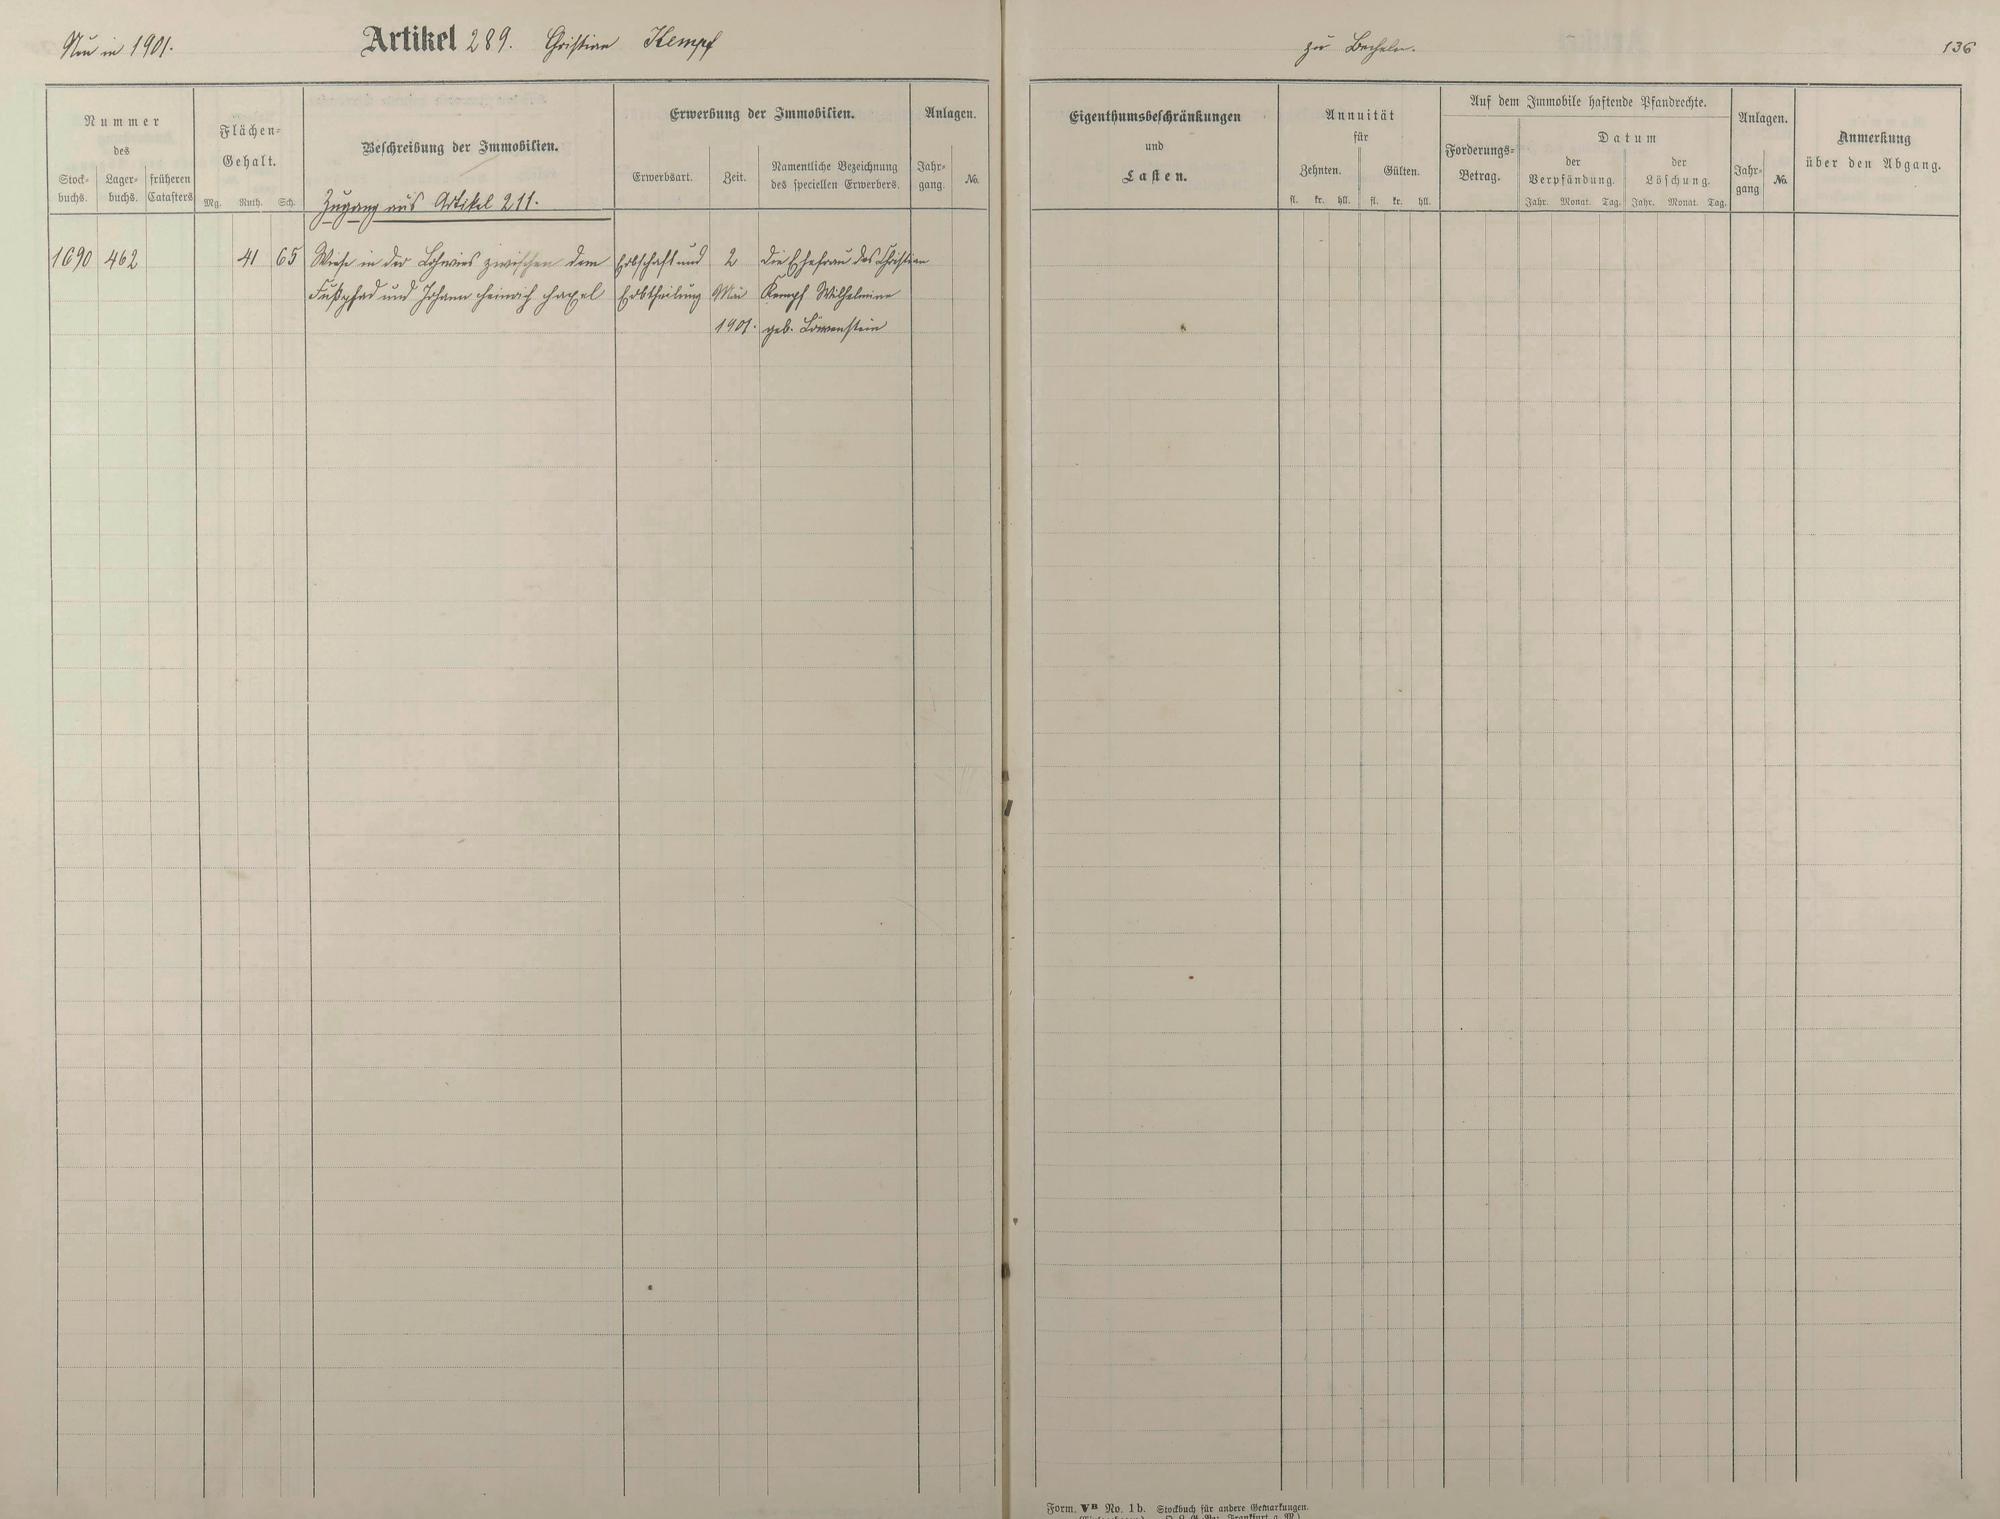 Neu in 1901.
Artikel 289. Christian Kempf
zu Becheln.
136
Nummer
des
Stock-
buchs.
Lager-
buchs.
früheren
Catasters
Flächen-
Gehalt.
Mg. Ruth. Sch.
Beschreibung der Immobilien.
Zugang aus Artikel 211.
Erwerbung der Immobilien.
Erwerbsart.
Zeit.
Namentliche Bezeichnung
des speciellen Erwerbers.
Anlagen.
Jahr-
gang.
No.
Eigenthumsbeschränkungen
und
Lasten.
Annuität
für
Zehnten.
Gülten.
fl. kr. hll. fl. kr. hll.
Auf dem Immobile haftende Pfandrechte.
Forderungs-
Betrag.
Datum
der
Verpfändung.
der
Löschung.
Jahr. Monat. Tag. Jahr. Monat. Tag.
Anlagen.
Jahr-
gang
No.
Anmerkung
über den Abgang.
1690 462 41 65 Wiese in der Lohwies zwischen dem Erbschaft und 2 die Ehefrau des Christian
Fußpfad und Johann Heinrich Erbtheilung Mai Kempf Wilhelmine
1901. geb. Löwenstein
Form. VB No. 1b. Stockbuch für andere Gemarkungen.